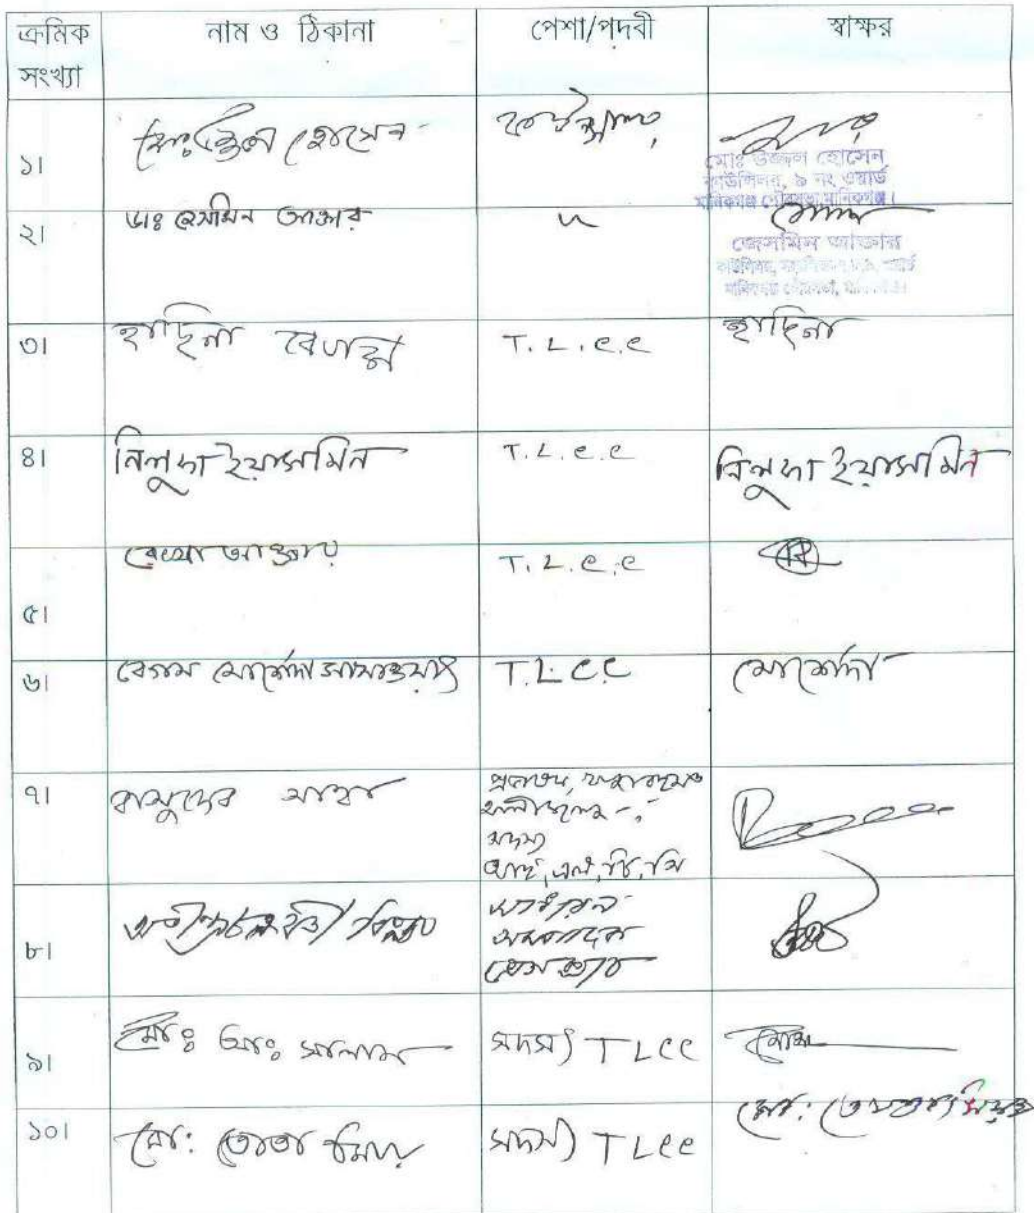 ক্রমিক সংখ্যা নাম ও ঠিকানা পেশা/পদবী স্বাক্ষর
১। মোঃ উজ্জল হোসেন কাউন্সিলর
মোঃ উজ্জল হোসেন
কাউন্সিলর, ৯ নং ওয়ার্ড
মানিকগঞ্জ পৌরসভা, মানিকগঞ্জ।
২। ডাঃ জেসমিন আক্তার "
জেসমিন আক্তার
৩। হাছিনা বেগম T.L.C.C হাছিনা
৪। নিলুফা ইয়াসমিন T.L.C.C নিলুফা ইয়াসমিন
৫। রেখা আক্তার T.L.C.C
৬। বেগম মোর্শেদা T.L.C.C মোর্শেদা
৭। বাসুদেব সাহা
সদস্য
৮। বিপ্লব
সাধারণ
সম্পাদক
প্রেস ক্লাব
৯। মোঃ আঃ সালাম সদস্য TLCC
১০। মো: তোতা মিয়া সদস্য TLCC মো: তোতা মিয়া